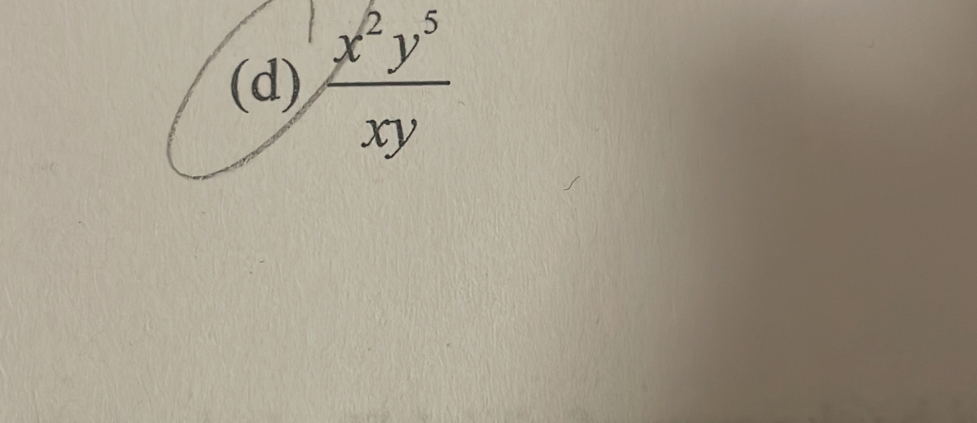 (d) x²y⁵
xy